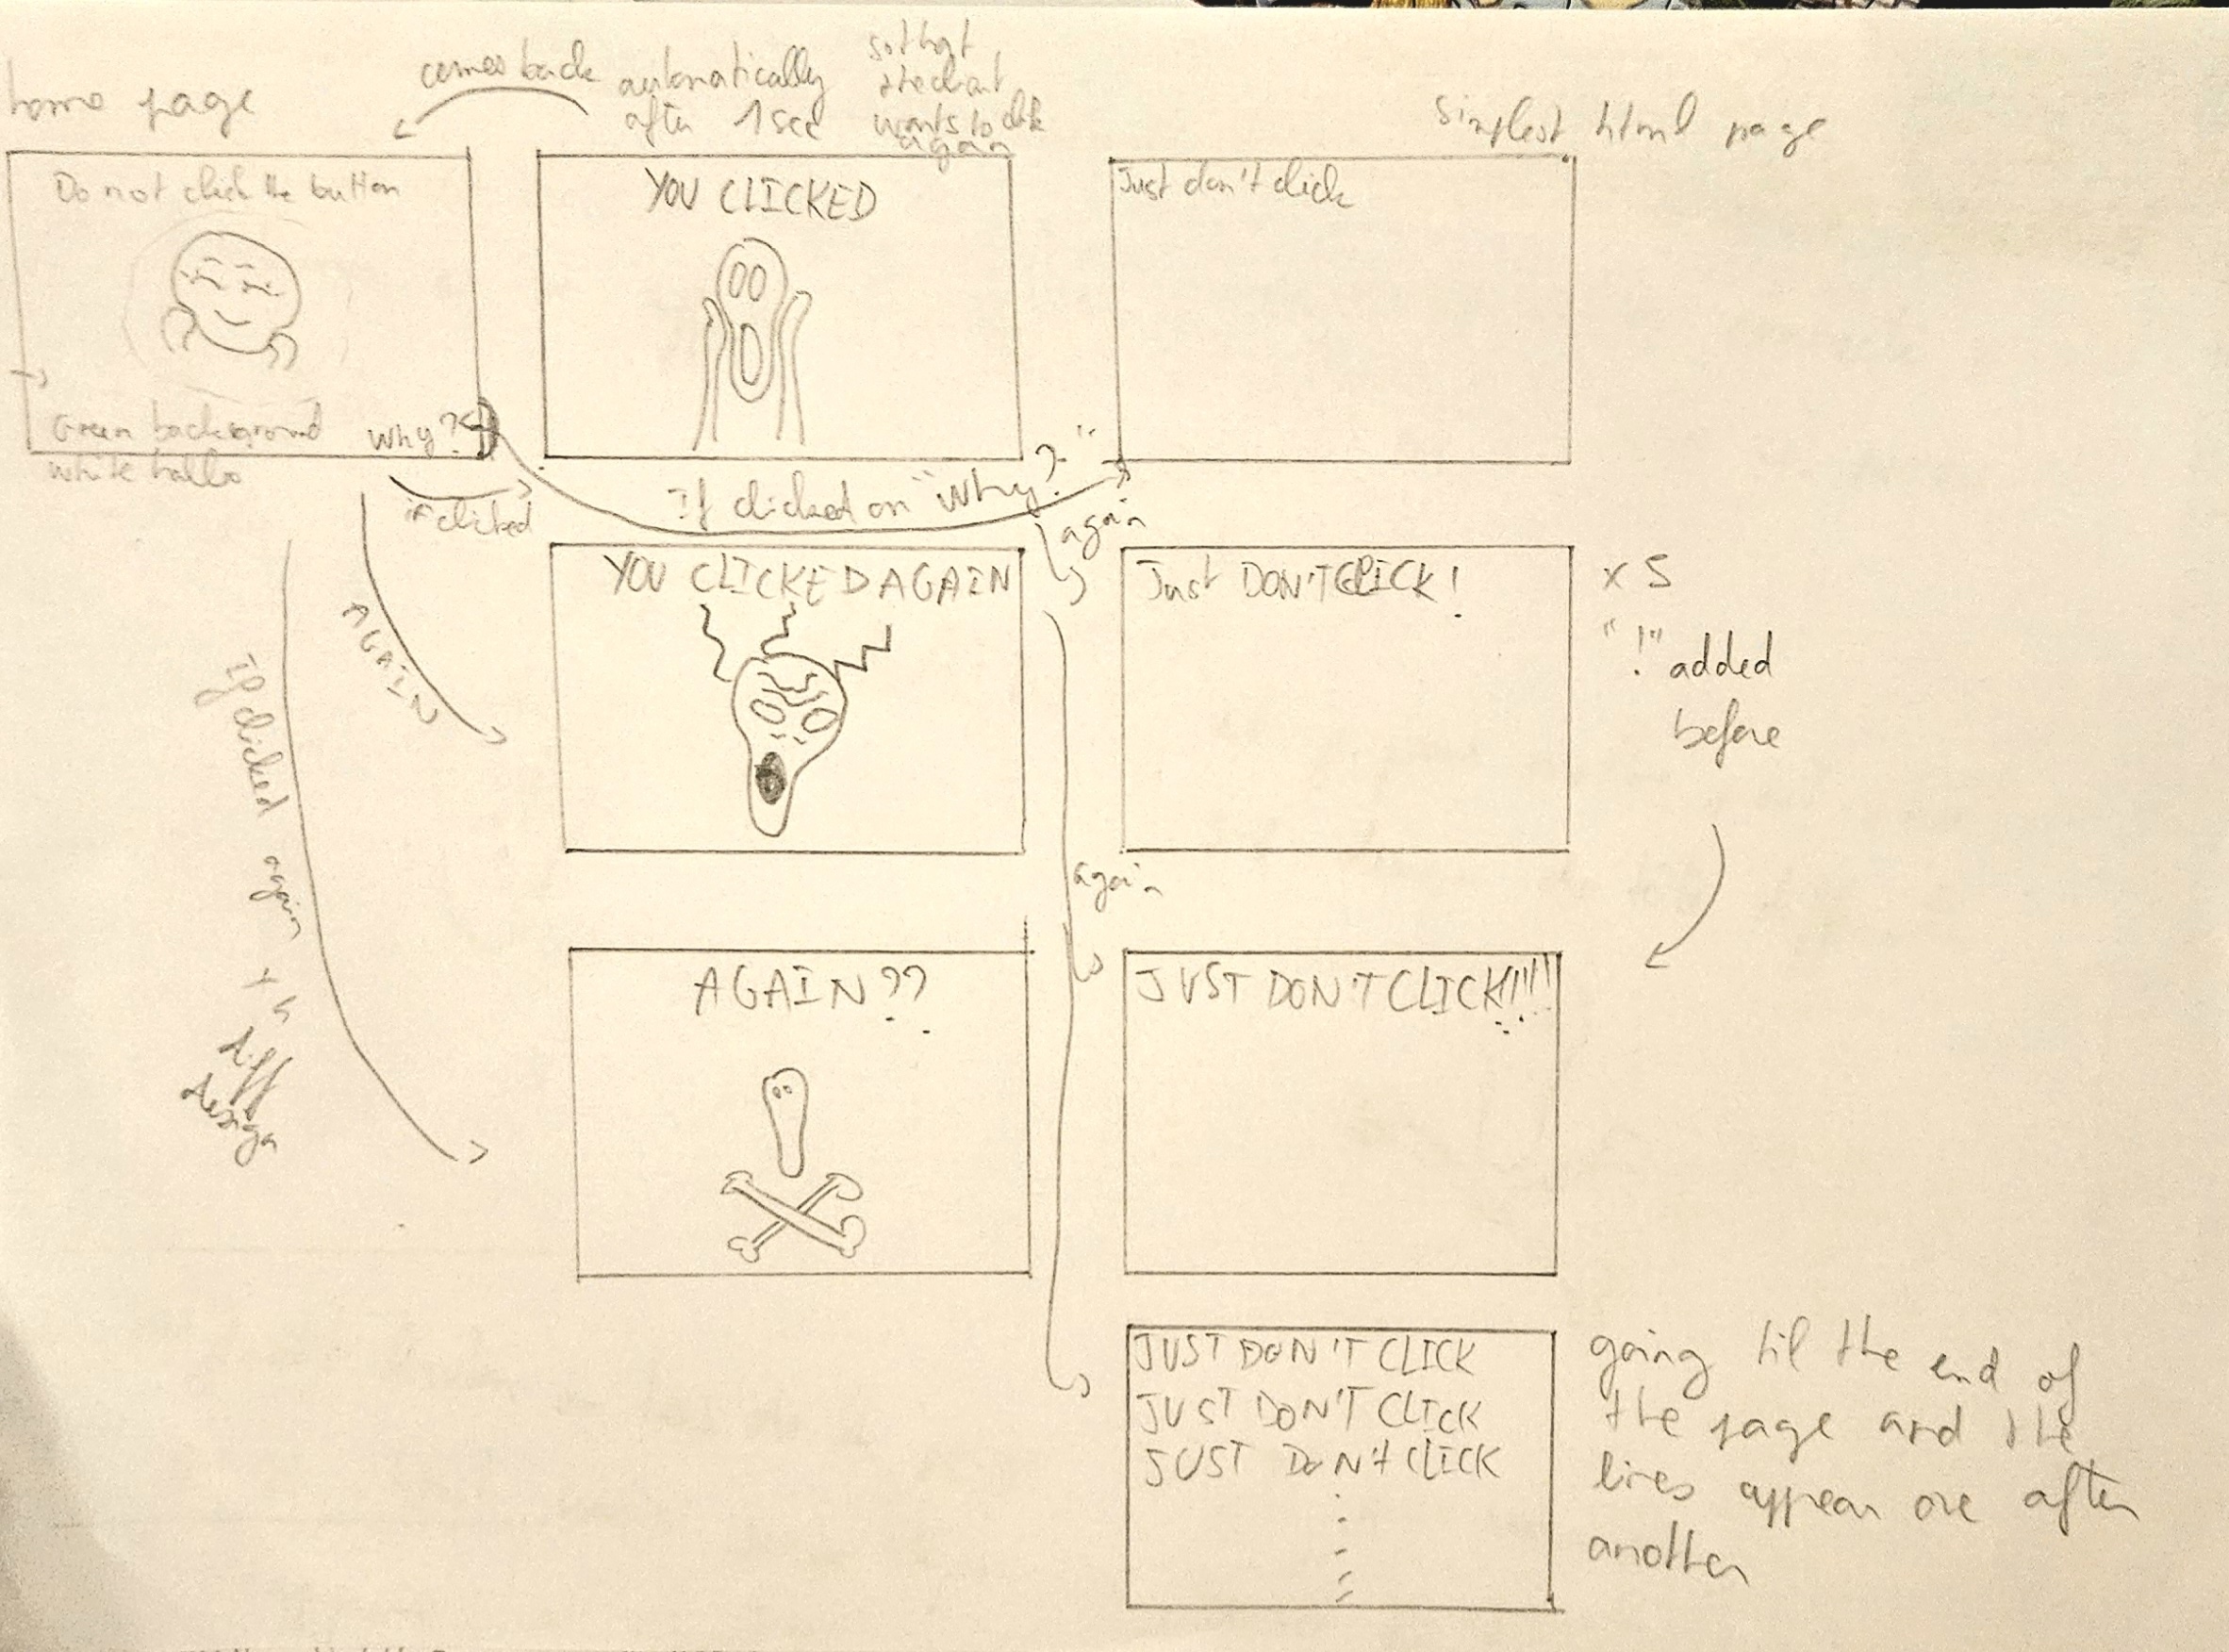 home page
comes back
automatically
after 1 sec
so that
wants to click
again
simplest html page
Do not click the button
Green background
white hallo
Why?
YOU CLICKED
Just don't click
if clicked
If clicked on "Why?"
again
YOU CLICKED AGAIN
AGAIN
Just DON'T CLICK!
x 5
"!" added
before
If clicked again
diff
design
again
AGAIN??
JUST DON'T CLICK!!!!!
JUST DON'T CLICK
JUST DON'T CLICK
JUST DON'T CLICK
going til the end of
the page and the
lines appear one after
another